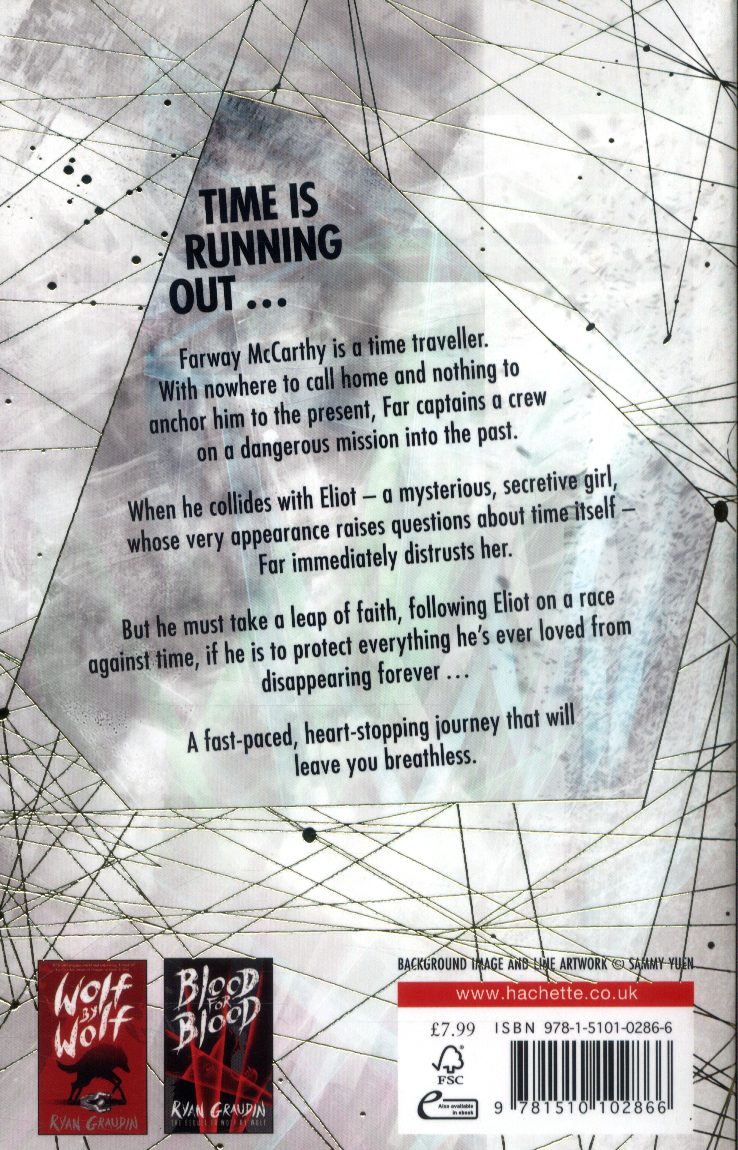 TIME IS
RUNNING
OUT ...
Farway McCarthy is a time traveller.
With nowhere to call home and nothing to
anchor him to the present, Far captains a crew
on a dangerous mission into the past.
When he collides with Eliot – a mysterious, secretive girl,
whose very appearance raises questions about time itself –
Far immediately distrusts her.
But he must take a leap of faith, following Eliot on a race
against time, if he is to protect everything he's ever loved from
disappearing forever ...
A fast-paced, heart-stopping journey that will
leave you breathless.
WOLF
BY
WOLF
RYAN GRAUDIN
BLOOD
FOR
BLOOD
RYAN GRAUDIN
THE SEQUEL TO WOLF BY WOLF
BACKGROUND IMAGE AND LINE ARTWORK © SAMMY YUEN
www.hachette.co.uk
£7.99 ISBN 978-1-5101-0286-6
FSC
e Also available
in ebook
9 781510 102866